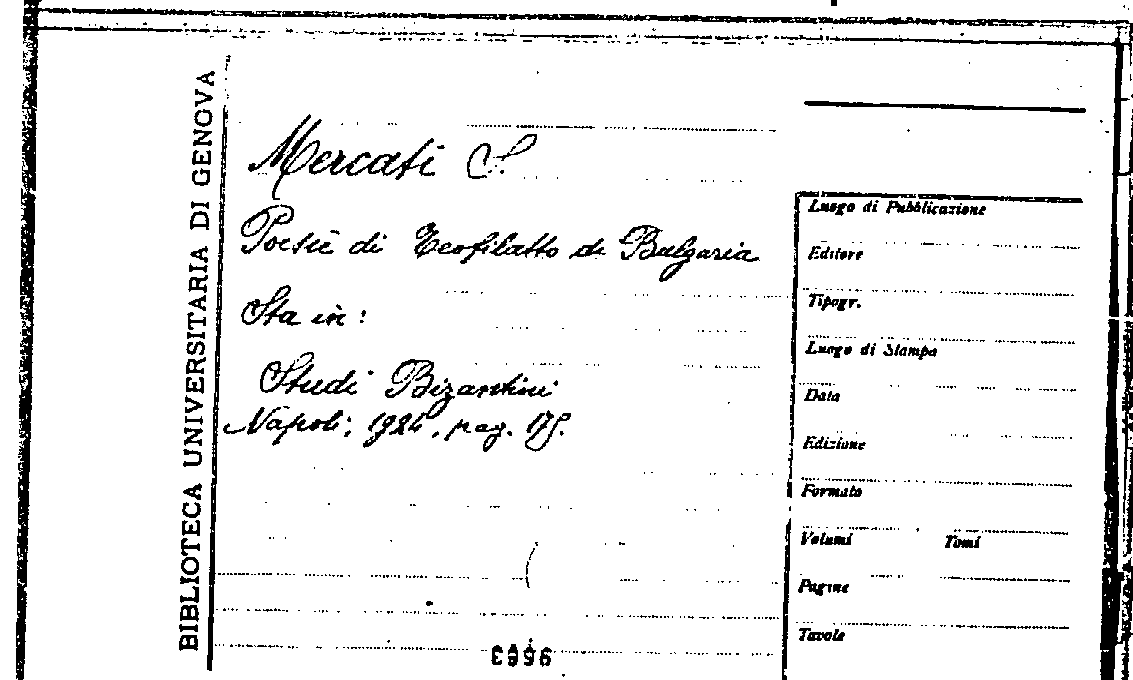 BIBLIOTECA UNIVERSITARIA DI GENOVA
Mercati S.
Poesie di Teofilatto de Bulgaria
Sta in:
Studi Bizantini
Napoli, 1924, pag. 175.
Luogo di Pubblicazione
Editore
Tipogr.
Luogo di Stampa
Data
Edizione
Formato
Volumi Tomi
Pagine
Tavole